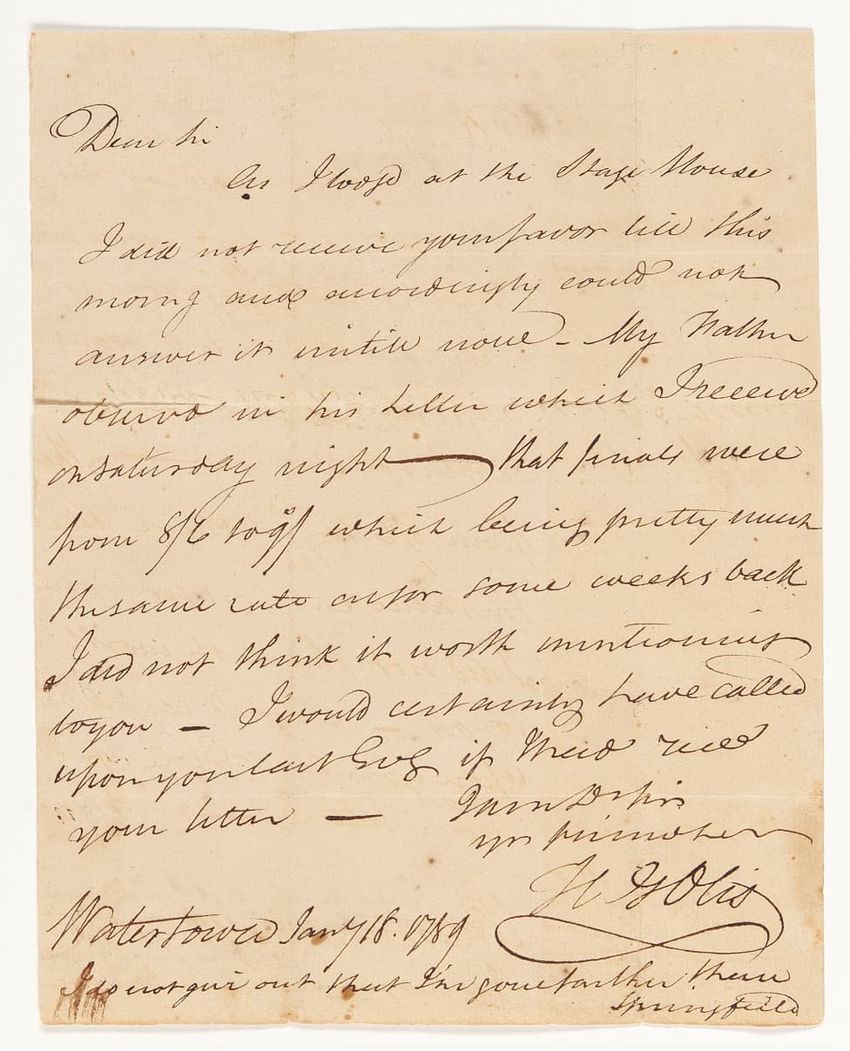 Dear Sir
As I lodged at the Stage House
I did not receive your favor till this
morng and accordingly could not
answer it untill now - My Father
observd in his Letter which I receivd
on Saturday night — that finals were
from 8/6 to 9/ which being pretty much
the same rate as for some weeks back
I did not think it worth mentioning
to you — I would certainly have called
upon you last Evg if I had recd
your letter — I am Dr Sir
yrs
H G Otis
Watertown Jany 18. 1789
I do not give out that I'm gone farther than
Springfield